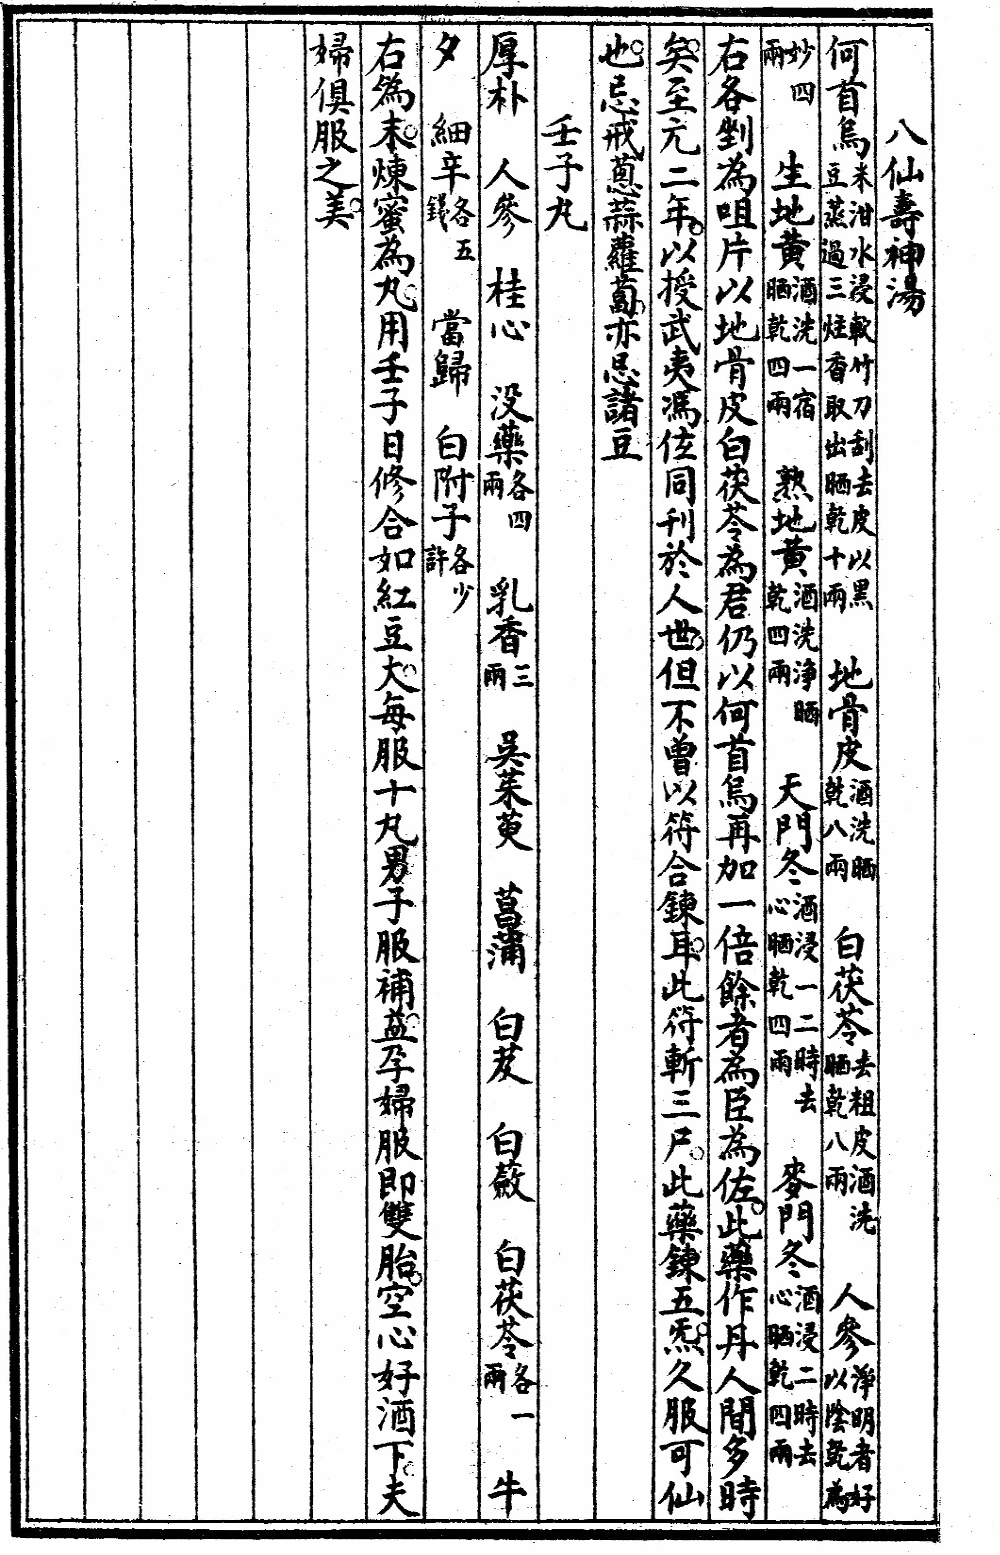 八仙壽神湯
何首烏米泔水浸軟竹刀刮去皮以黑豆蒸過三炷香取出晒乾十兩　地骨皮酒洗晒乾八兩　白茯苓去粗皮酒洗晒乾八兩　人參淨明者好以陰乾為
妙四兩　生地黃酒洗一宿晒乾四兩　熟地黃酒洗淨晒乾四兩　天門冬酒浸一二時去心晒乾四兩　麥門冬酒浸二時去心晒乾四兩
右各剉為咀片以地骨皮白茯苓為君仍以何首烏再加一倍餘者為臣為佐。此藥作丹人間多時
矣。至元二年。以授武夷馮佐同刊於人世。但不曾以符合鍊耳。此符斬三尸。此藥鍊五炁。久服可仙
也。忌戒蔥蒜蘿蔔。亦忌諸豆
壬子丸
厚朴　人參　桂心　没藥各四兩　乳香三兩　吳茱萸　菖蒲　白芨　白蘞　白茯苓各一兩　牛
夕　細辛各五錢　當歸　白附子各少許
右為末。煉蜜為丸。用壬子日修合如紅豆大。每服十丸男子服補益。孕婦服即雙胎。空心好酒下。夫
婦俱服之美。